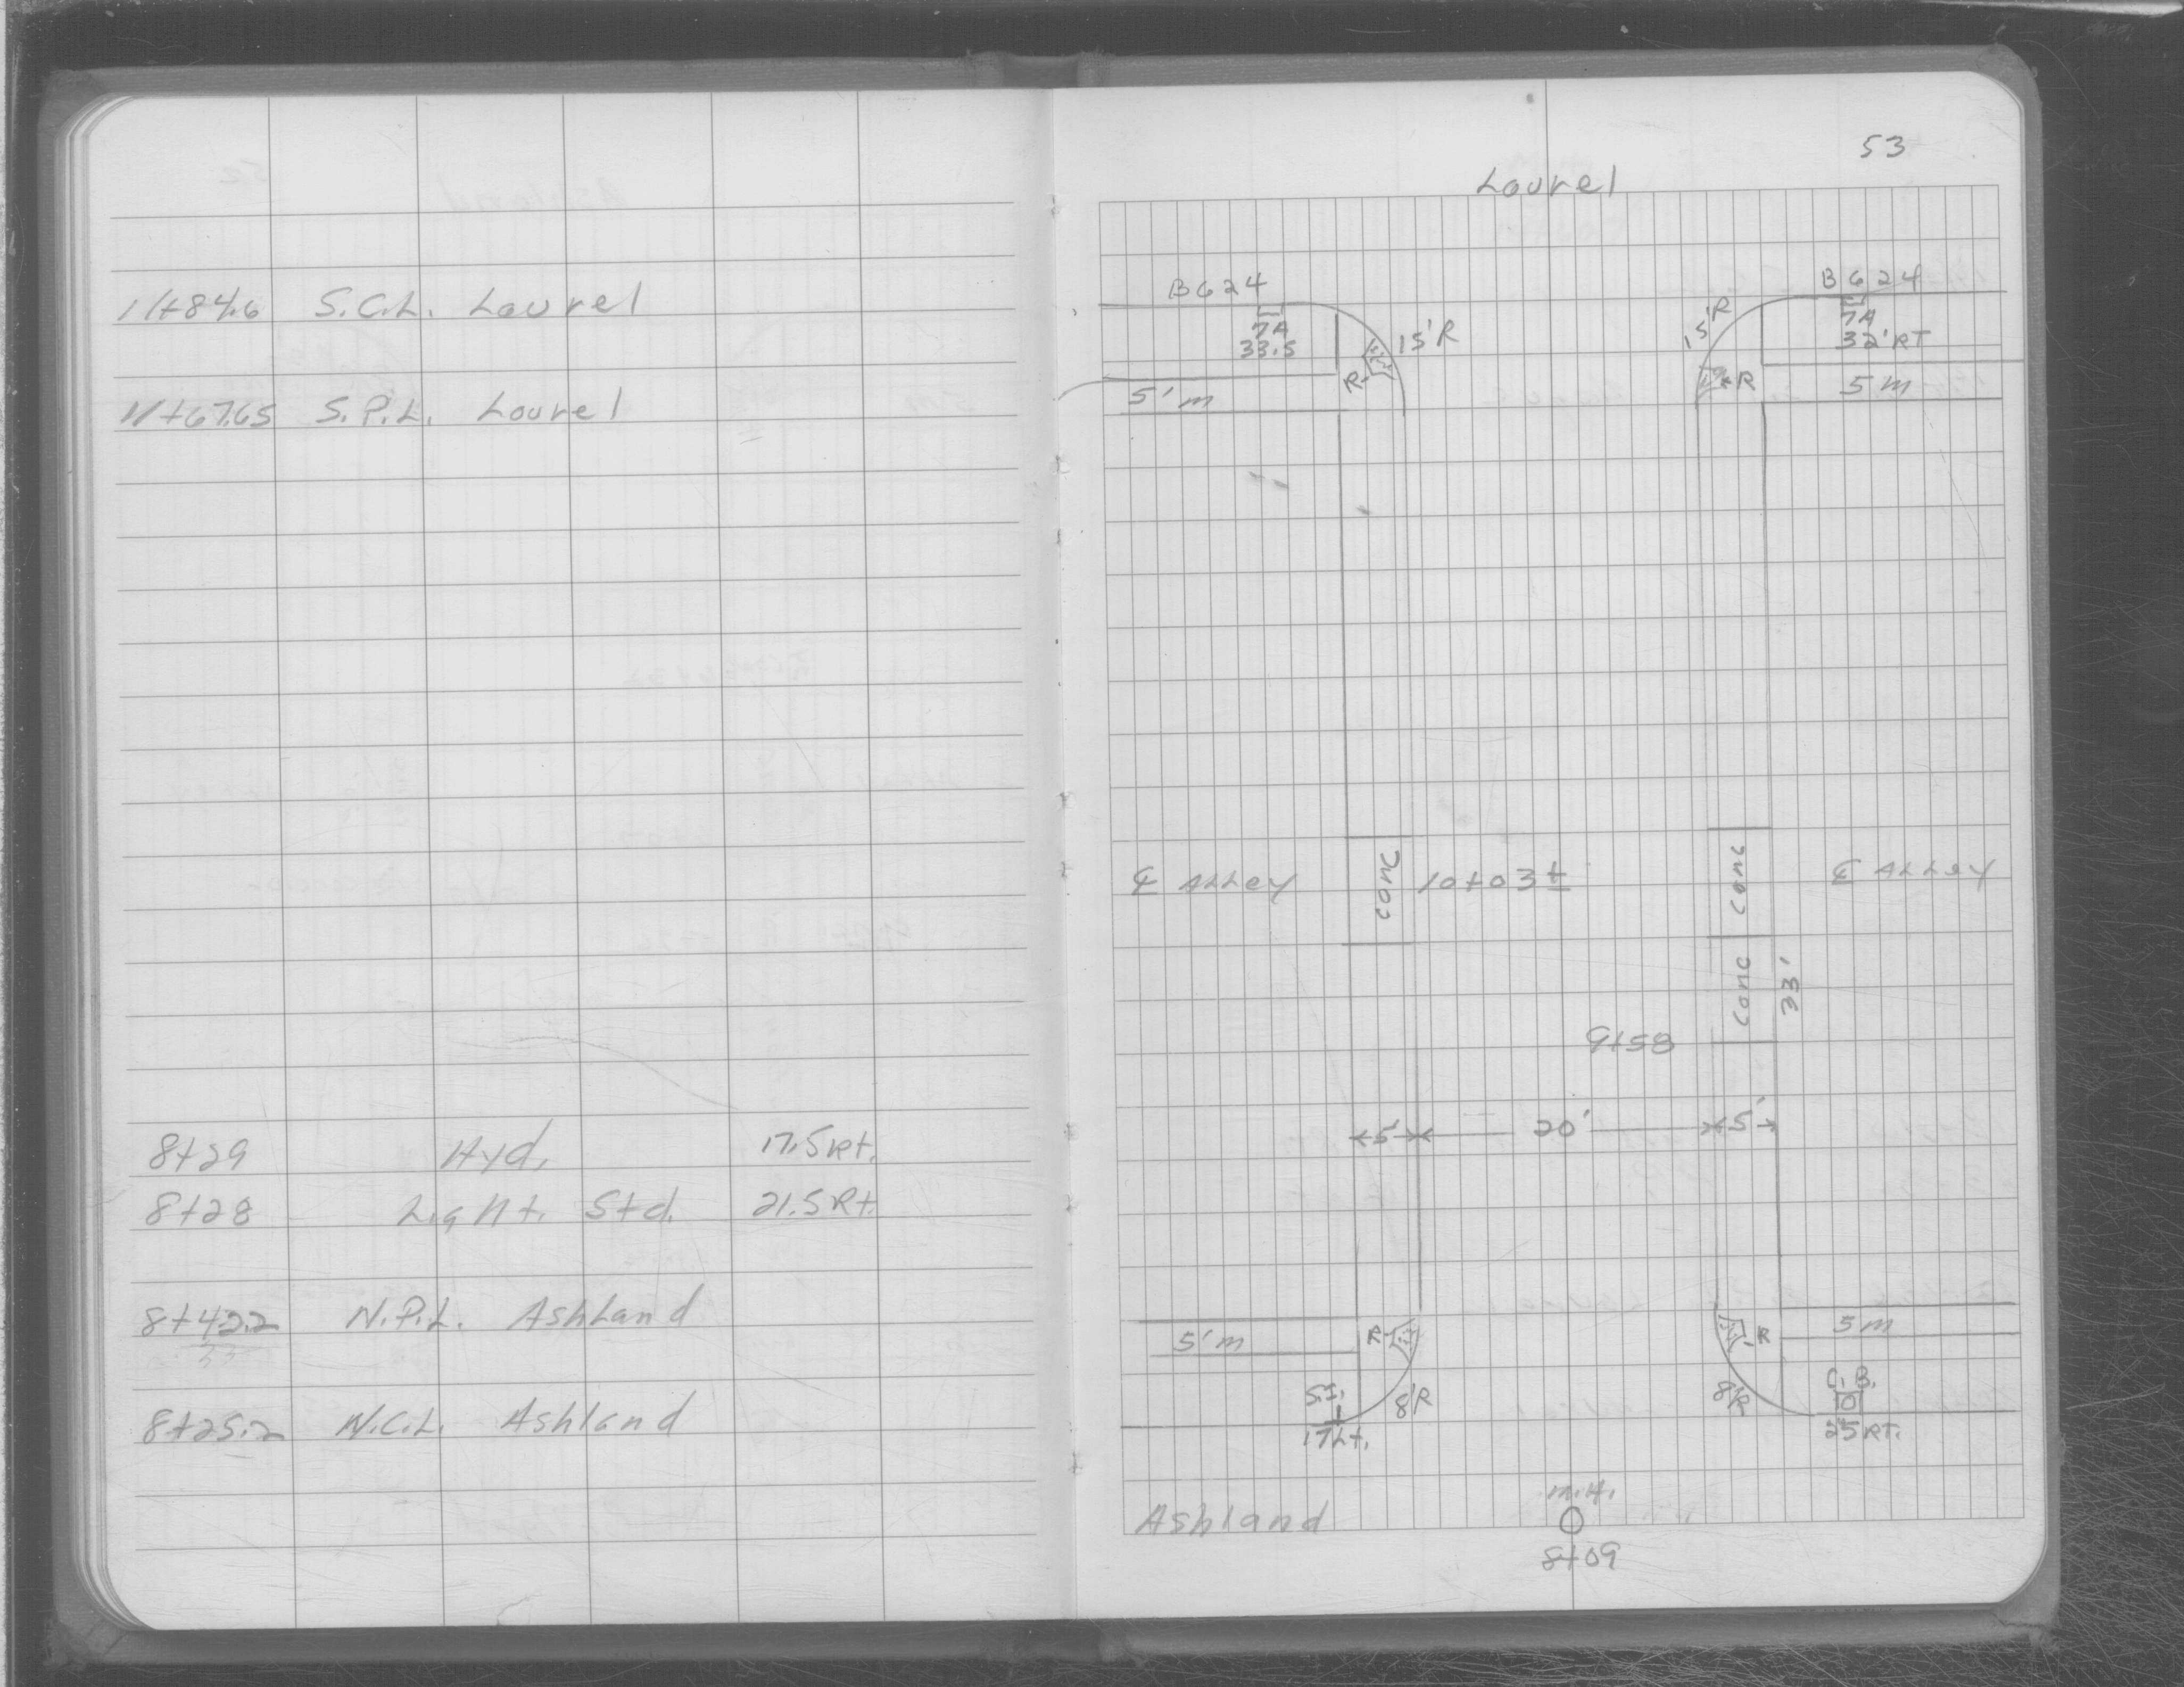 11+84.6 S.C.L. Laurel
11+67.65 S.P.L. Laurel
8+29 Hyd. 17.5 Rt.
8+28 Light. Std. 21.5 Rt.
8+42.2 N.P.L. Ashland
8+25.2 N.C.L. Ashland
53
Laurel
B624 B624
7A 7A
33.5 32' RT
15'R 15'R
R R
5'm 5m
℄ Alley conc 10+03± conc ℄ Alley
conc 33'
9+58
5' 20' 5'
5'm R R 5m
S.I. 8'R 8'R C.B.
17Lt. 25 RT.
M.H.
Ashland
8+09